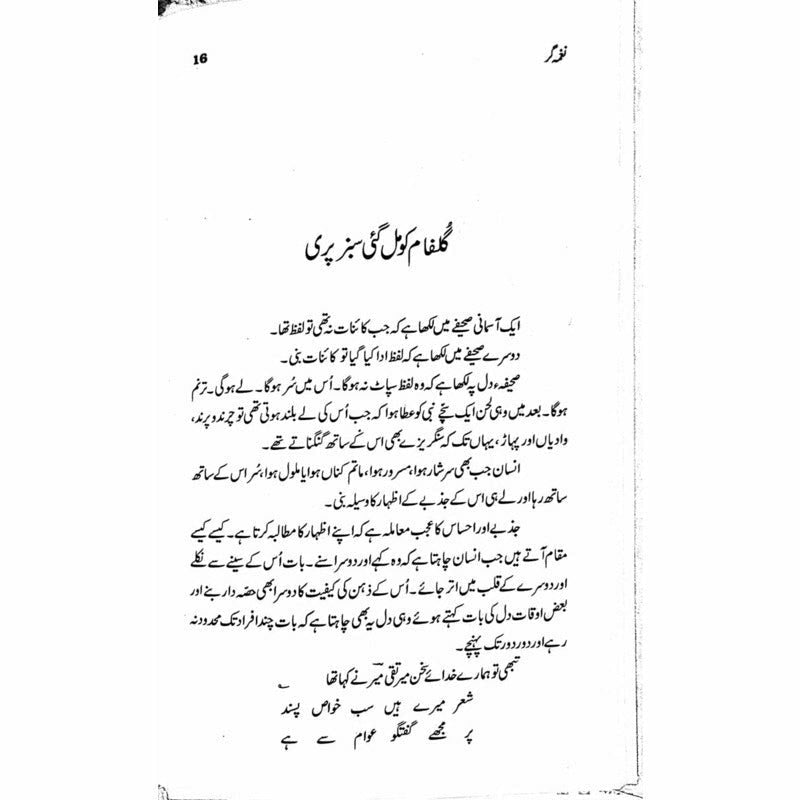 نغمہ گر
16
گُلفام کو مل گئی سبز پری
ایک آسمانی صحیفے میں لکھا ہے کہ جب کائنات نہ تھی تو لفظ تھا۔
دوسرے صحیفے میں لکھا ہے کہ لفظ ادا کیا گیا تو کائنات بنی۔
صحیفہء دل پہ لکھا ہے کہ وہ لفظ سپاٹ نہ ہوگا۔ اُس میں سُر ہوگا۔ لے ہوگی۔ ترنم
ہوگا۔ بعد میں وہی لحن ایک سچّے نبی کو عطا ہوا کہ جب اُس کی لے بلند ہوتی تھی تو چرند و پرند،
وادیاں اور پہاڑ، یہاں تک کہ سنگریزے بھی اس کے ساتھ گنگناتے تھے۔
انسان جب بھی سرشار ہوا، مسرور ہوا، ماتم کناں ہوا یا ملول ہوا، سُر اس کے ساتھ
ساتھ رہا اور لے ہی اس کے جذبے کے اظہار کا وسیلہ بنی۔
جذبے اور احساس کا عجب معاملہ ہے کہ اپنے اظہار کا مطالبہ کرتا ہے۔ کیسے کیسے
مقام آتے ہیں جب انسان چاہتا ہے کہ وہ کہے اور دوسرا سنے۔ بات اُس کے سینے سے نکلے
اور دوسرے کے قلب میں اتر جائے۔ اُس کے ذہن کی کیفیت کا دوسرا بھی حصّہ دار بنے اور
بعض اوقات دل کی بات کہتے ہوئے وہی دل یہ بھی چاہتا ہے کہ بات چند افراد تک محدود نہ
رہے اور دور دور تک پہنچے۔
تبھی تو ہمارے خدائے سخن میر تقی میرؔ نے کہا تھا
شعر میرے ہیں سب خواص پسند
پر مجھے گفتگو عوام سے ہے